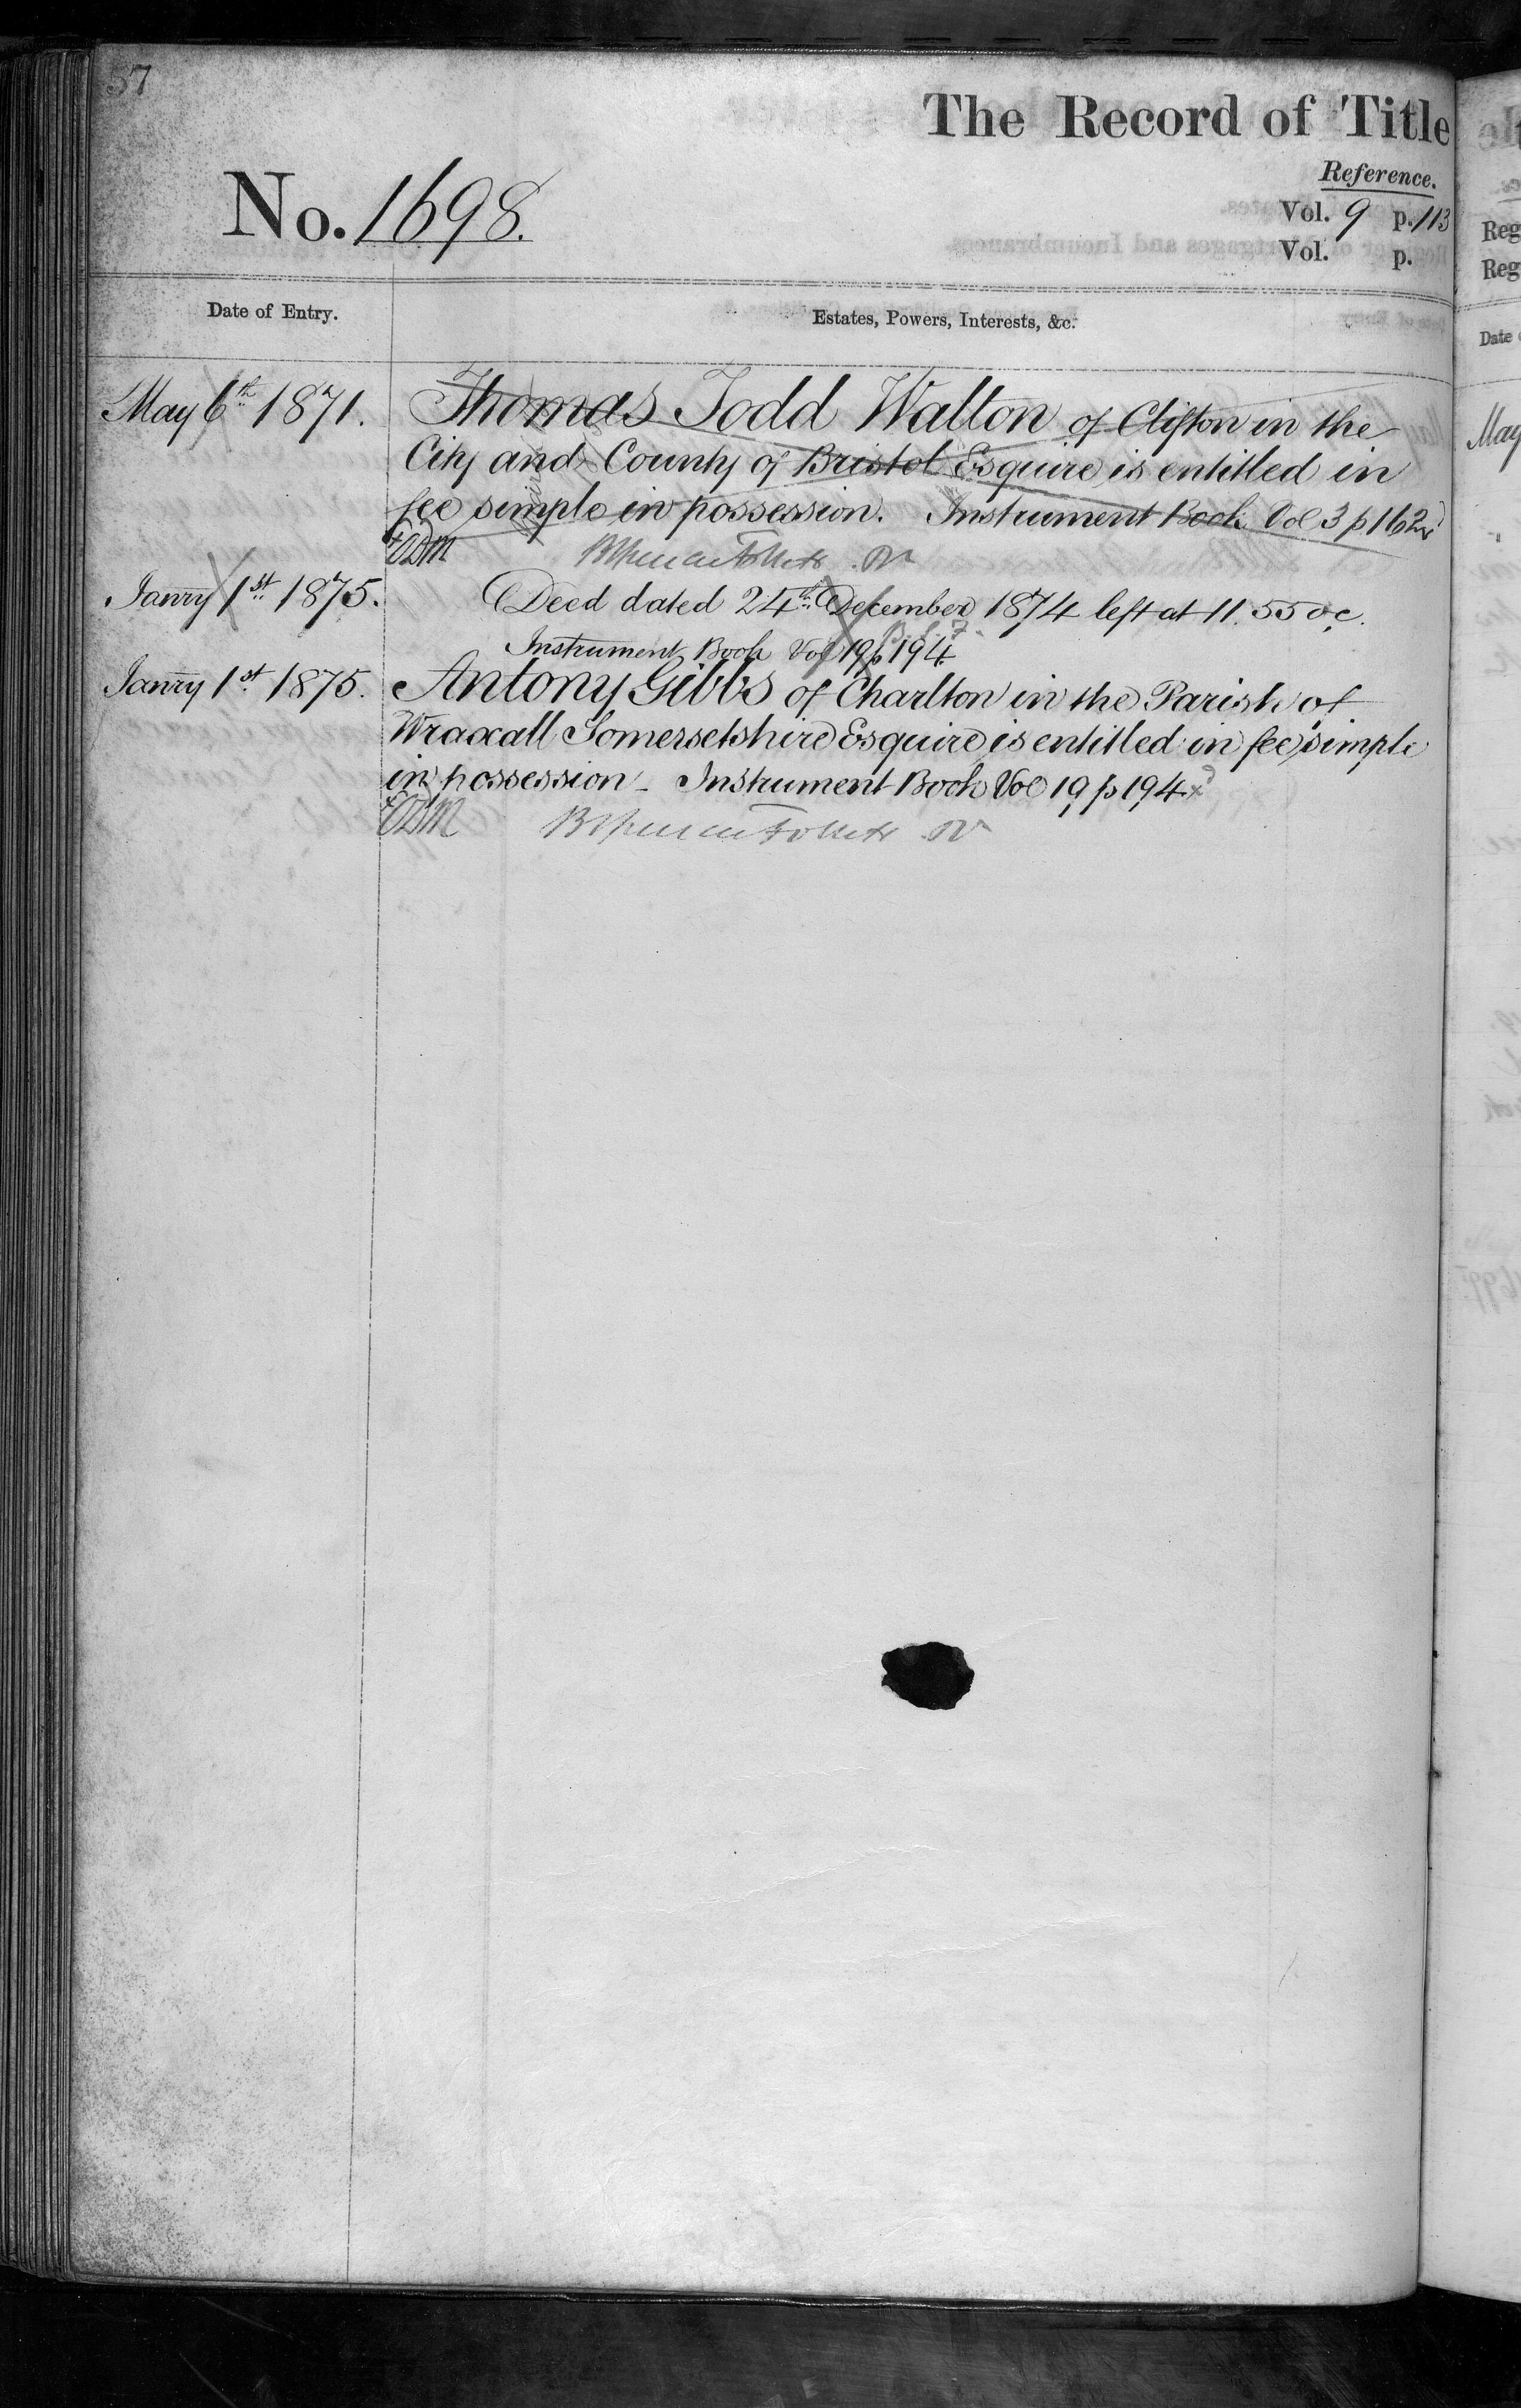 57
The Record of Title
Reference.
No. 1698.
Vol. 9 p. 113
Vol. p.
Date of Entry.
Estates, Powers, Interests, &c.
May 6th 1871.
Thomas Todd Walton of Clifton in the
City and County of Bristol Esquire is entitled in
fee simple in possession. Instrument Book Vol 3 p 162
Janry 1st 1875.
Deed dated 24th December 1874 left at 11.55 oc.
Instrument Book Vol 19 p 194
Janry 1st 1875.
Antony Gibbs of Charlton in the Parish of
Wraxall Somersetshire Esquire is entitled in fee simple
in possession - Instrument Book Vol 19 p 194
Reg
Reg
Date
May